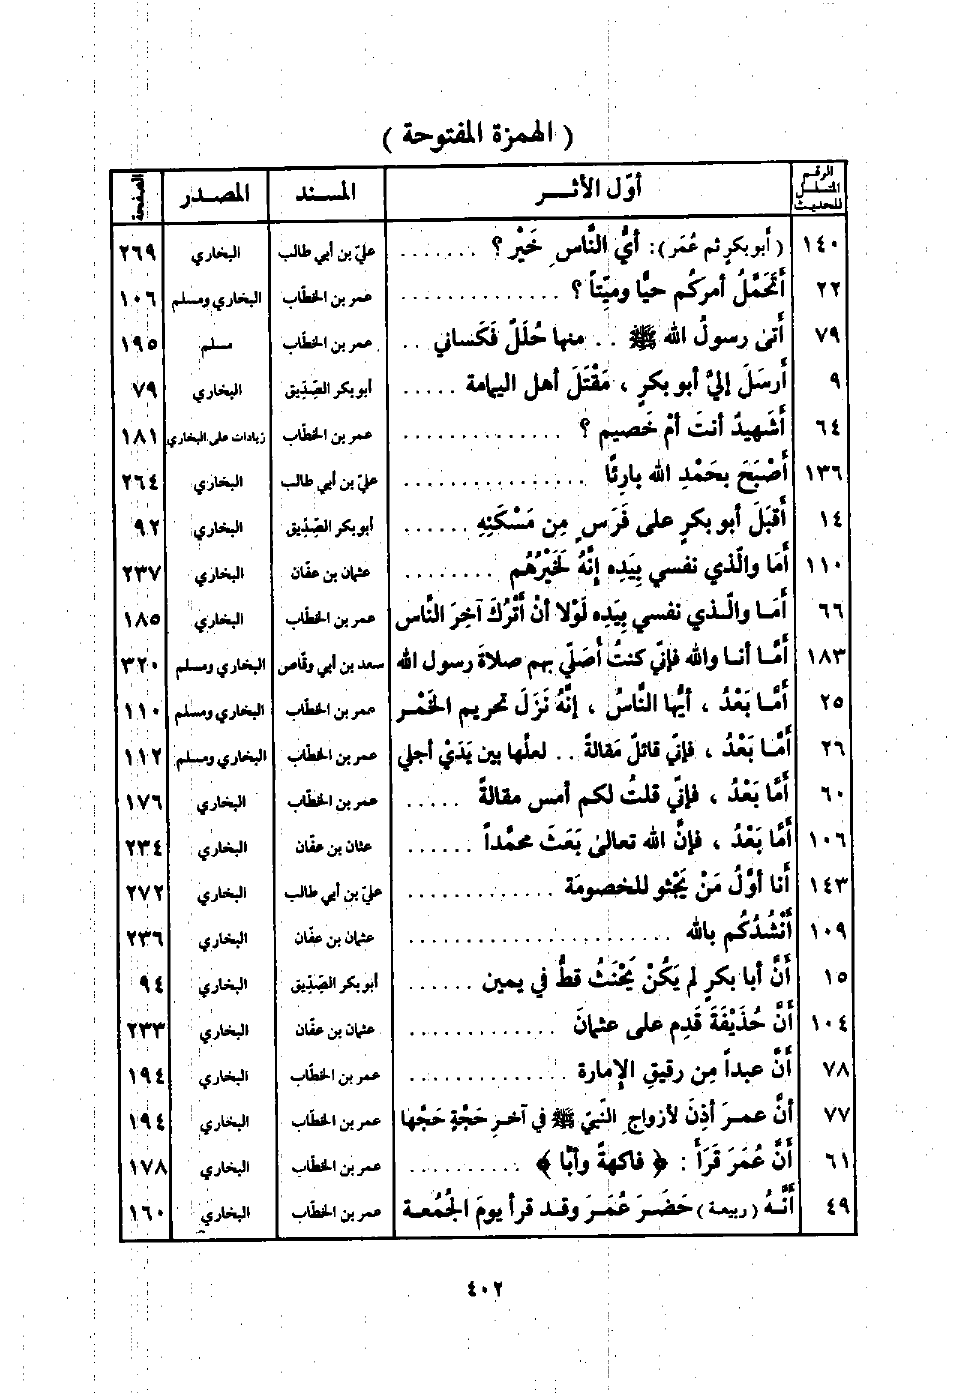 ( الهمزة المفتوحة )
الرقم المتسلسل للحديث | أوّل الأثـــر | المســند | المصـدر | الصفحة
١٤٠ | (أبو بكرٍ ثم عُمَر): أيُّ النَّاسِ خَيْر ؟ . . . . . . . | عليّ بن أبي طالب | البخاري | ٢٦٩
٢٢ | أَتَحَمَّلُ أمركُم حيًّا وميِّتاً ؟ . . . . . . . . . . . . . . | عمر بن الخطّاب | البخاري ومسلم | ١٠٦
٧٩ | أَتى رسولُ الله ﷺ . . منها حُلَلٌ فَكَساني . . | عمر بن الخطّاب | مسلم | ١٩٥
٩ | أَرسَلَ إليَّ أبو بكرٍ ، مَقْتَلَ أهل اليمامة . . . . . | أبو بكر الصّدّيق | البخاري | ٧٩
٦٤ | أَشَهِيدٌ أنتَ أمْ خَصيم ؟ . . . . . . . . . . . . . . | عمر بن الخطّاب | زيادات على البخاري | ١٨١
١٣٦ | أَصْبَحَ بحَمْدِ الله بارِئًا . . . . . . . . . . . . . . . . | عليّ بن أبي طالب | البخاري | ٢٦٤
١٤ | أَقبَلَ أبو بكرٍ على فَرَسٍ مِن مَسْكَنِهِ . . . . . . | أبو بكر الصّدّيق | البخاري | ٩٢
١١٠ | أَمَا والّذي نفسي بِيَدِه إنَّهُ لَخَيْرُهُم . . . . . . . . | عثمان بن عفّان | البخاري | ٢٣٧
٦٦ | أَمَـا والّـذي نفسي بِيَدِه لَوْلا أنْ أَتْرُكَ آخِرَ النَّاس | عمر بن الخطّاب | البخاري | ١٨٥
١٨٣ | أَمَّـا أنـا والله فإنّي كنتُ أُصَلّي بهم صلاةَ رسول الله | سعد بن أبي وقّاص | البخاري ومسلم | ٣٢٠
٢٥ | أَمَّـا بَعْدُ ، أيُّها النَّاسُ ، إنَّهُ نَزَلَ تحريم الخَمْـر | عمر بن الخطّاب | البخاري ومسلم | ١١٠
٢٦ | أَمَّـا بَعْدُ ، فإنّي قائلٌ مَقالةً . . لعلَّها بين يَدَيْ أجلي | عمر بن الخطّاب | البخاري ومسلم | ١١٢
٦٠ | أَمَّا بَعْدُ ، فإنّي قلتُ لكم أمس مقالةً . . . . . | عمر بن الخطّاب | البخاري | ١٧٦
١٠٦ | أَمَّا بَعْدُ ، فإنَّ الله تعالىٰ بَعَثَ محمّداً . . . . . . | عثمان بن عفّان | البخاري | ٢٣٤
١٤٣ | أَنا أوَّلُ مَنْ يَجْثو للخصومَة . . . . . . . . . . . . | عليّ بن أبي طالب | البخاري | ٢٧٢
١٠٩ | أَنْشُدُكُم بالله . . . . . . . . . . . . . . . . . . . . . . | عثمان بن عفّان | البخاري | ٢٣٦
١٥ | أَنَّ أبا بكرٍ لم يَكُنْ يَحْنَثُ قطُّ في يمين . . . . . . | أبو بكر الصّدّيق | البخاري | ٩٤
١٠٤ | أَنَّ حُذَيْفَةَ قَدِم على عثمانَ . . . . . . . . . . . . . | عثمان بن عفّان | البخاري | ٢٣٣
٧٨ | أَنَّ عبداً مِن رقيقِ الإمارة . . . . . . . . . . . . . . | عمر بن الخطّاب | البخاري | ١٩٤
٧٧ | أنَّ عمـرَ أَذِنَ لأزواجِ النّبيّ ﷺ في آخـرِ حَجَّةٍ حَجَّها | عمر بن الخطّاب | البخاري | ١٩٤
٦١ | أَنَّ عُمَرَ قَرَأَ : ﴿ فاكهةً وأبًّا ﴾ . . . . . . . . . . | عمر بن الخطّاب | البخاري | ١٧٨
٤٩ | أَنَّـهُ (ربيعـة) حَضَـرَ عُمَـرَ وقـد قرأ يومَ الجُمُعـة | عمر بن الخطّاب | البخاري | ١٦٠
٤٠٢